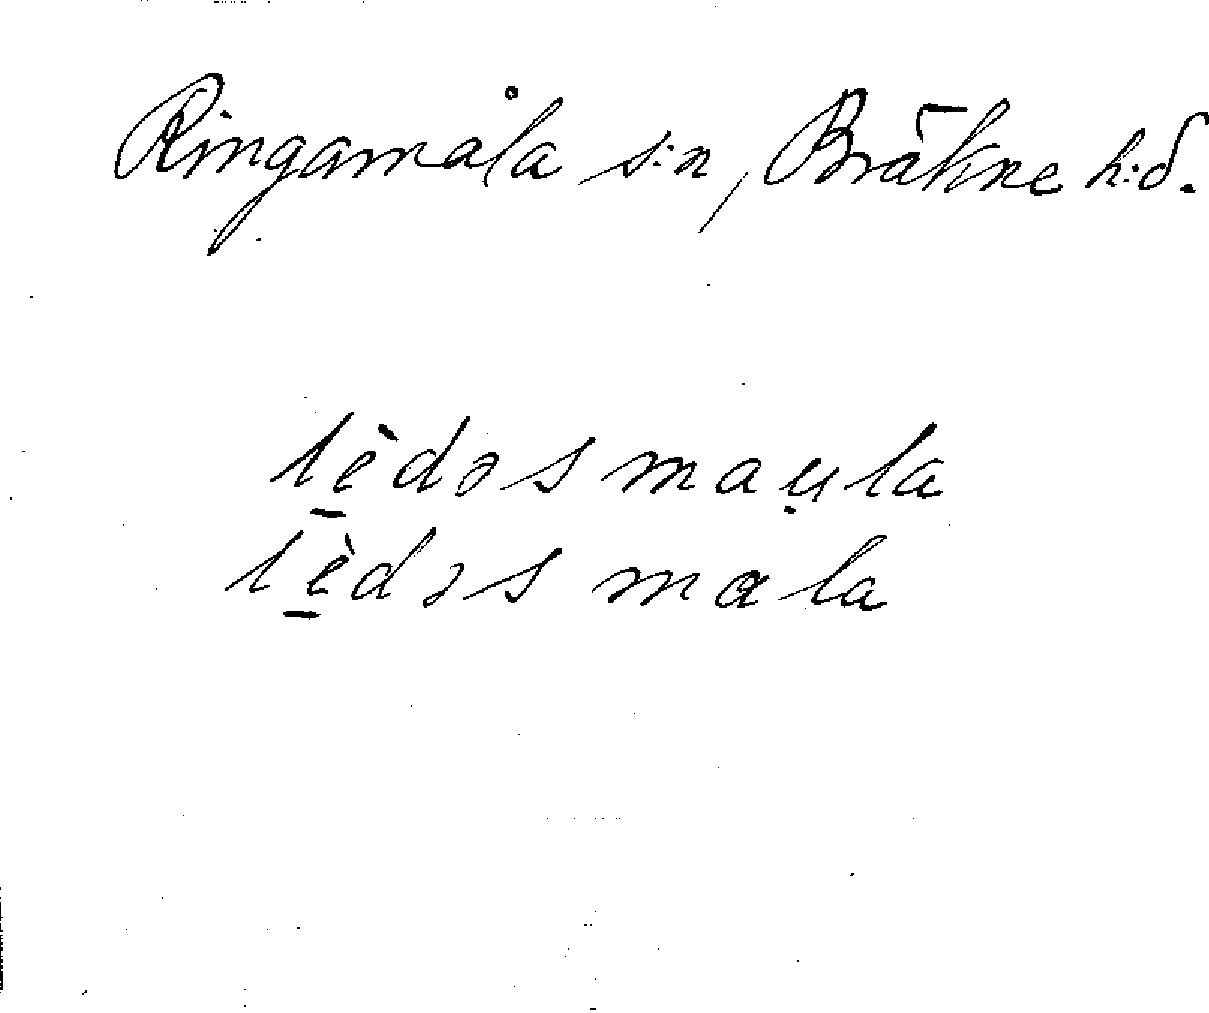 Ringamåla s:n, Bräkne h:d.
lè̱dəsmau̥la
lè̱dəs mala